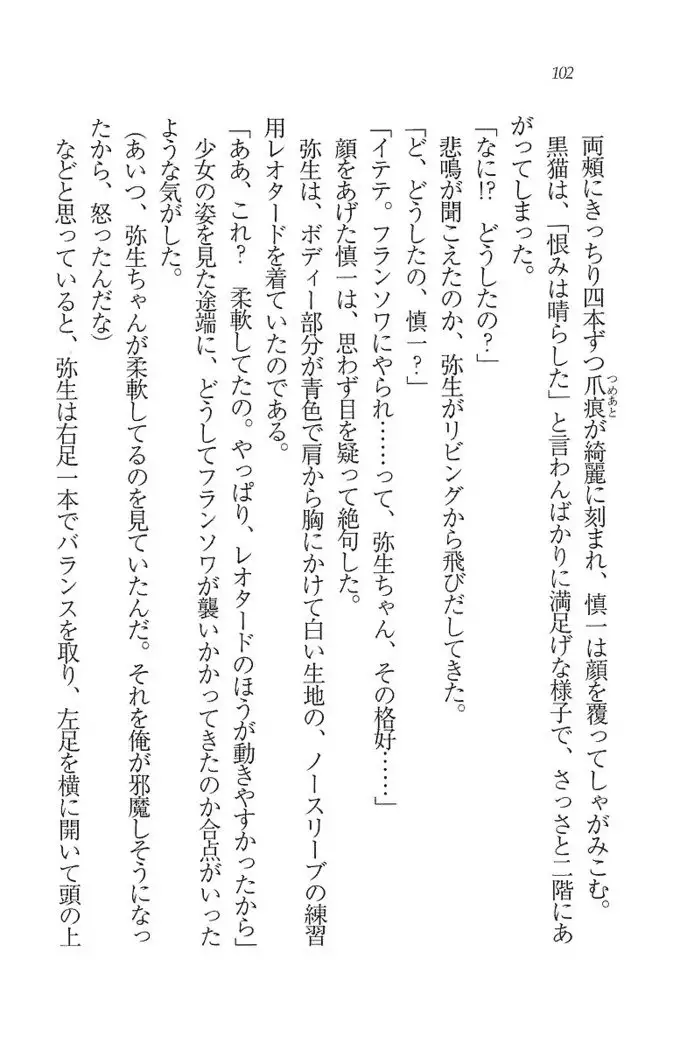 102
両頬にきっちり四本ずつ爪痕が綺麗に刻まれ、慎一は顔を覆ってしゃがみこむ。
つめあと
黒猫は、「恨みは晴らした」と言わんばかりに満足げな様子で、さっさと二階にあ
がってしまった。
「なに!?　どうしたの?」
悲鳴が聞こえたのか、弥生がリビングから飛びだしてきた。
「ど、どうしたの、慎一?」
「イテテ。フランソワにやられ……って、弥生ちゃん、その格好……」
顔をあげた慎一は、思わず目を疑って絶句した。
弥生は、ボディー部分が青色で肩から胸にかけて白い生地の、ノースリーブの練習
用レオタードを着ていたのである。
「ああ、これ?　柔軟してたの。やっぱり、レオタードのほうが動きやすかったから」
少女の姿を見た途端に、どうしてフランソワが襲いかかってきたのか合点がいった
ような気がした。
(あいつ、弥生ちゃんが柔軟してるのを見ていたんだ。それを俺が邪魔しそうになっ
たから、怒ったんだな)
などと思っていると、弥生は右足一本でバランスを取り、左足を横に開いて頭の上